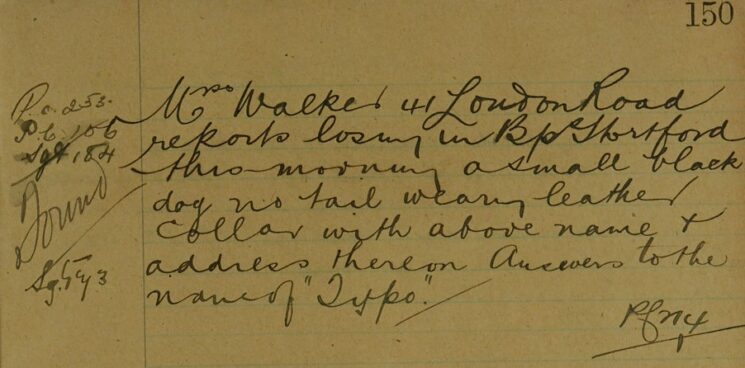 150
P.c. 253.
P.c. 106
Sgt 184
Found
Mrs Walker 41 London Road
reports losing in Bps Stortford
this morning a small black
dog no tail wearing leather
collar with above name &
address thereon Answers to the
name of "Typo".